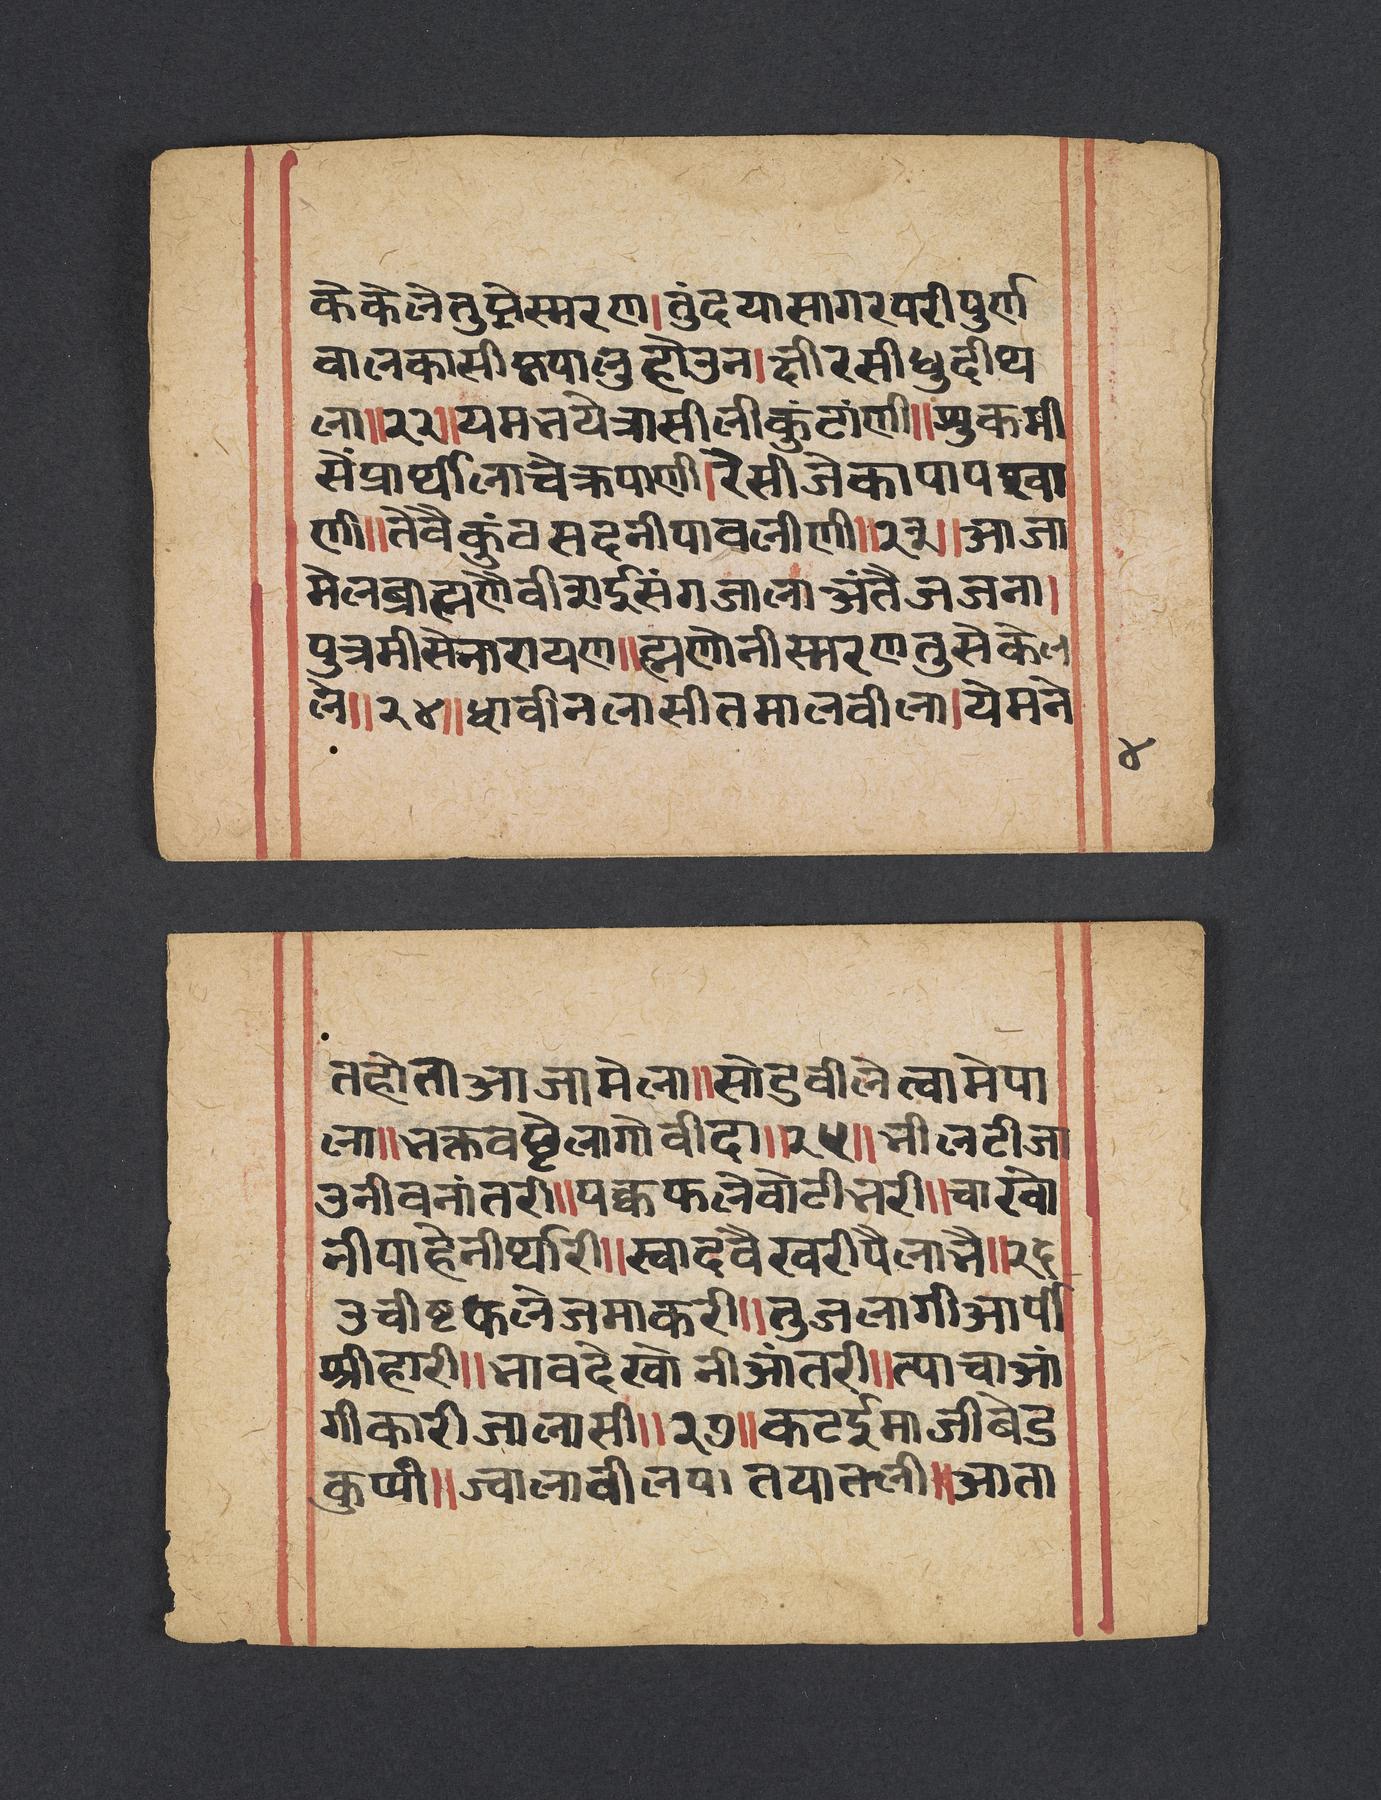 केकेलेतुझेस्मरण।तुंदयासागरपरीपुर्ण
बालकासीकृपालुहोउन।क्षीरसींधुदीध
ला॥२२॥यमतयेत्रासीलीकुंटांणी॥शुकमी
सेंप्रार्थीलाचेक्रपाणी।रैसीजेकापापखा
णी॥तेवैकुंठसदनीपावलीणी॥२३॥आजा
मेलब्राह्मणेवीत्रार्दुसंगजालाअंतेजजना।
पुत्रमीसेनारायण॥ह्मणोनीस्मरणतुसेकेल
ले॥२४॥धावीनलासीतमालवीला।येमने
४
तहोताआजामेला॥सोडवीलेत्वामेपा
ला॥भक्तवछेलागोवीदा॥२५॥भीलटीजा
उनीवनांतरी॥पक्वफलेवोटीभरी॥चाखो
नीपाहेनीर्धारी॥स्वादवैखरीपैलाभै॥२६
उचीष्टफलेजमाकरी॥तुजलागीआर्पी
श्रीहारी॥भावदेखोनीआंतरी॥त्याचाआं
गीकारीजालासी॥२७॥कटर्दुमाजीबेडु
कुप्पी॥ज्वालावीलपातयातली॥आता